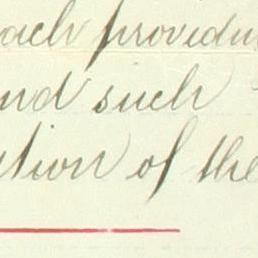 each providing
and such
ation of the